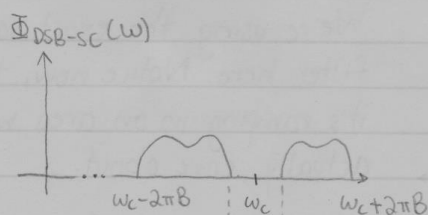 Φ_DSB-SC(ω)
...
ω_c-2πB ω_c ω_c+2πB